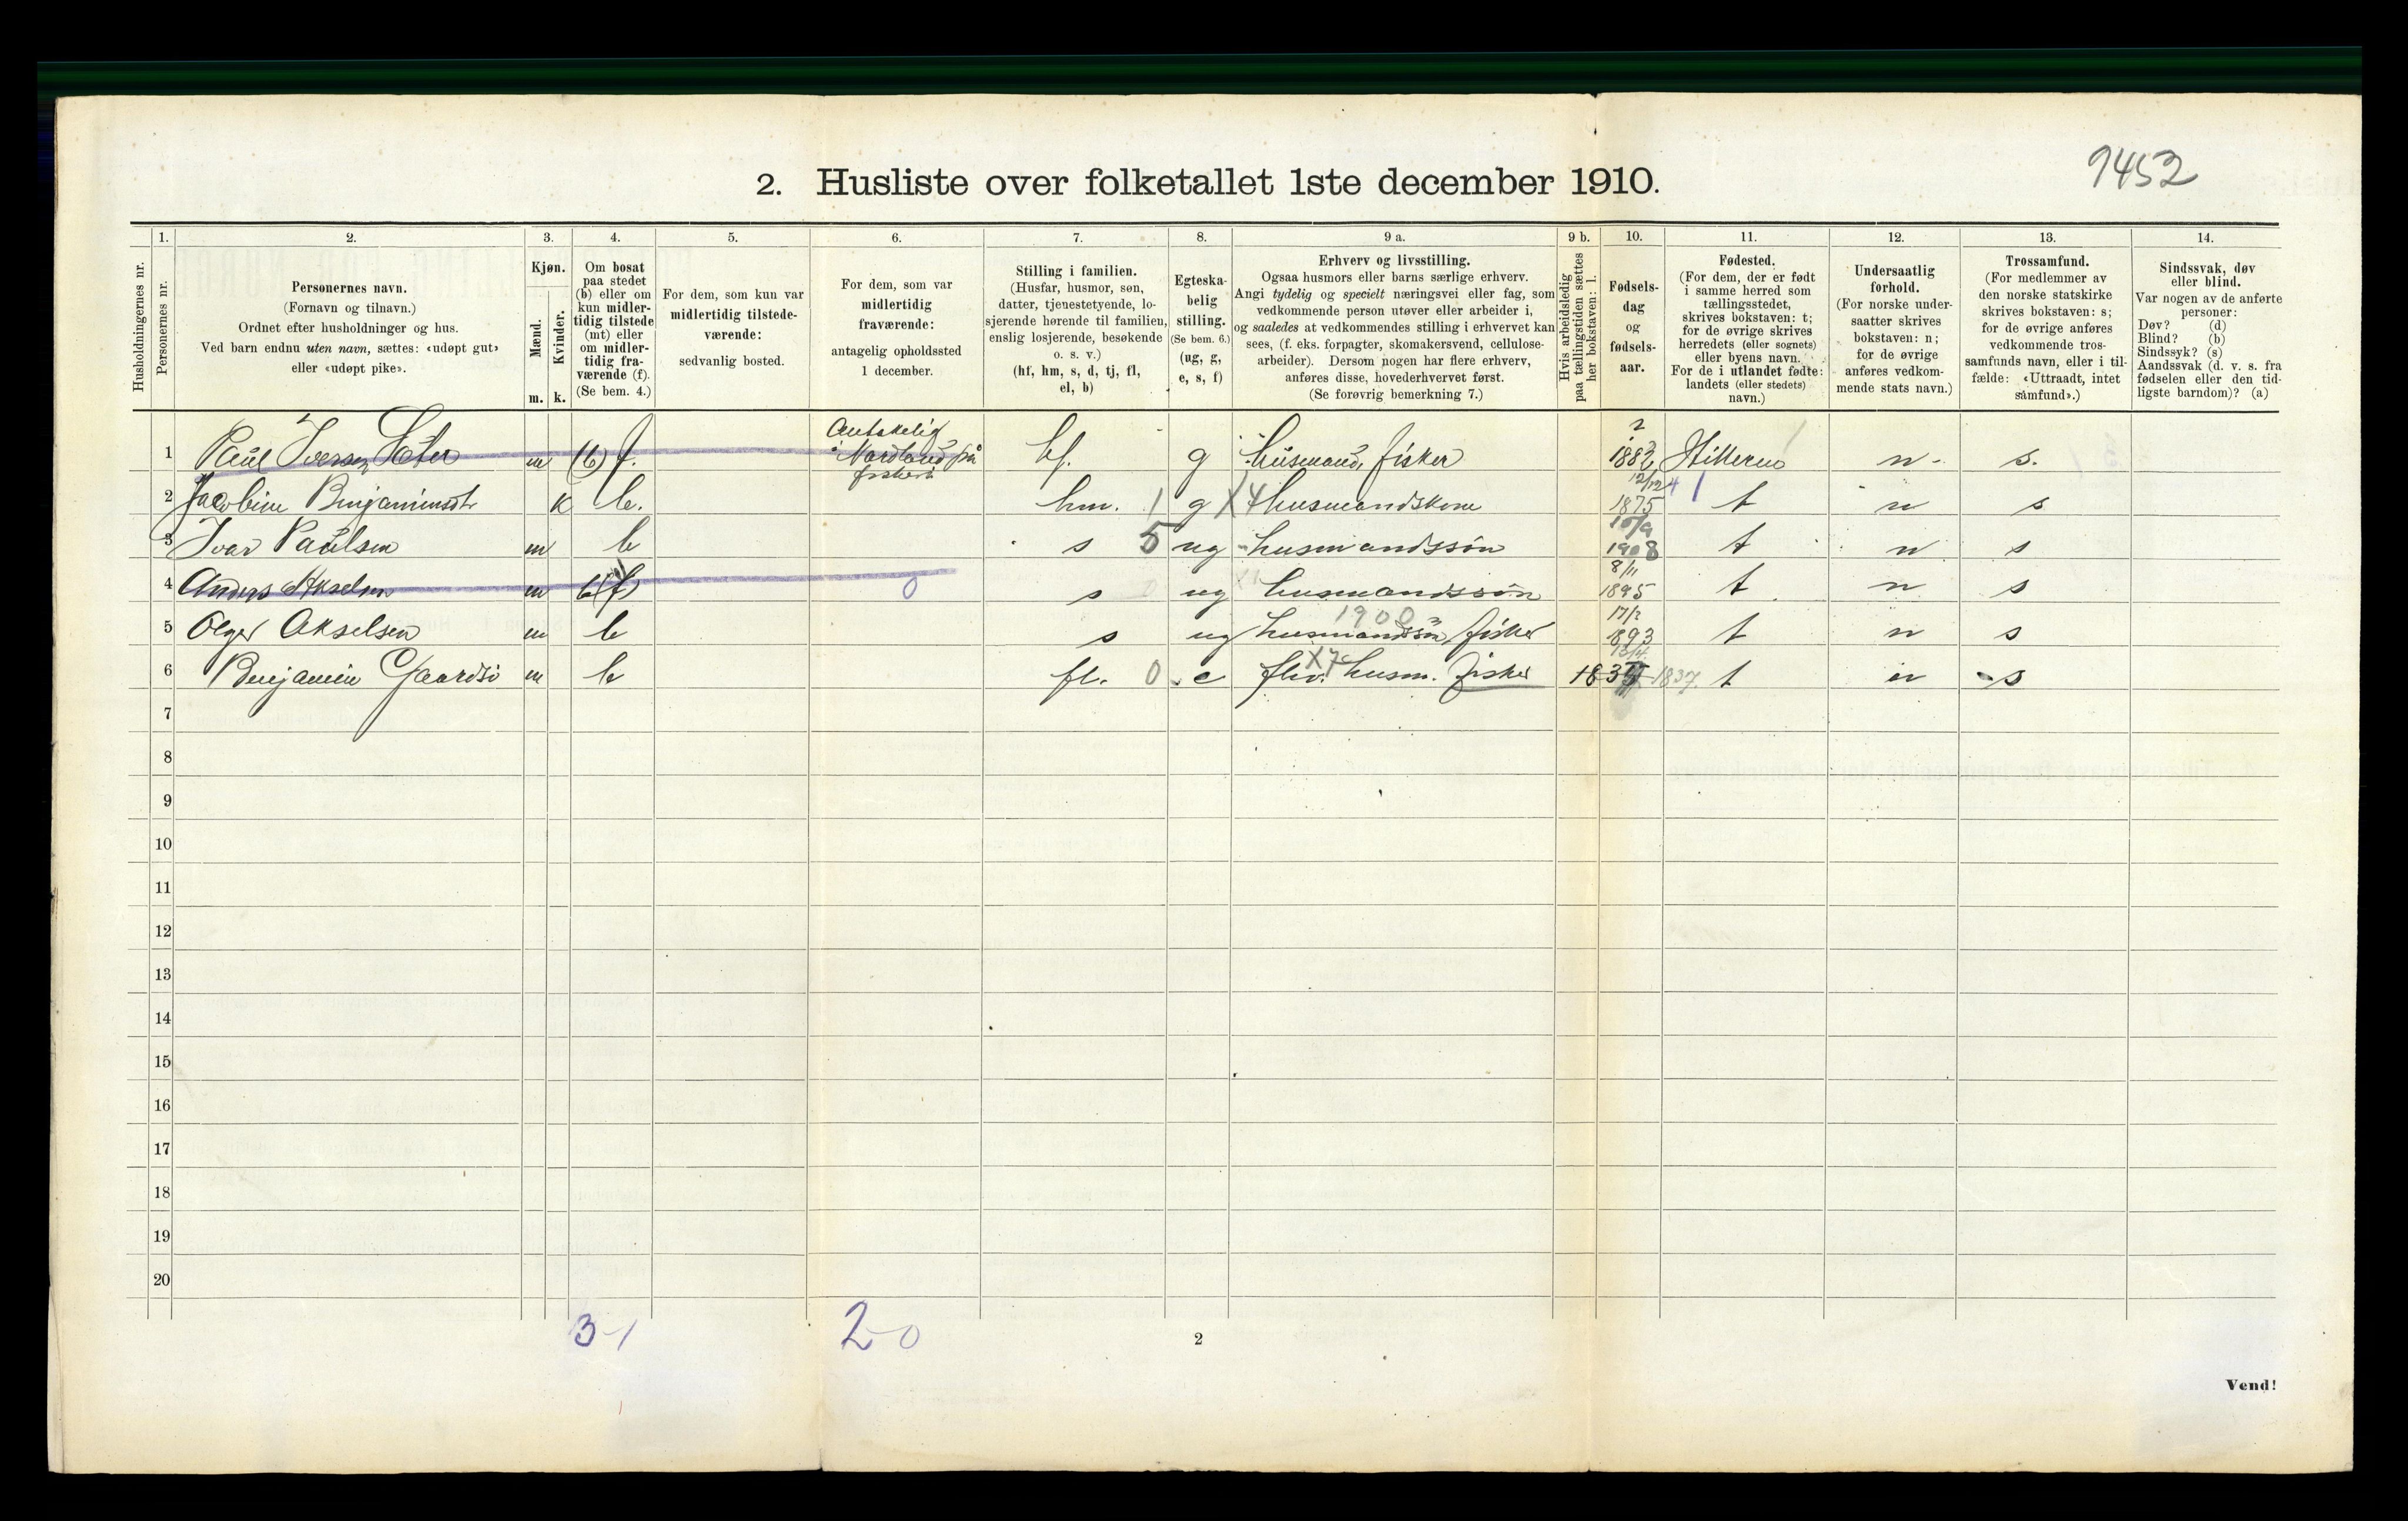 9452
2. Husliste over folketallet 1ste december 1910.
1. 2. 3. 4. 5. 6. 7. 8. 9 a. 9 b. 10. 11. 12. 13. 14.
Husholdningernes nr.
Personernes nr.
Personernes navn.
(Fornavn og tilnavn.)
Ordnet efter husholdninger og hus.
Ved barn endnu uten navn, sættes: «udøpt gut»
eller «udøpt pike».
Kjøn.
Mænd.
Kvinder.
m. k.
Om bosat
paa stedet
(b) eller om
kun midler-
tidig tilstede
(mt) eller
om midler-
tidig fra-
værende (f).
(Se bem. 4.)
For dem, som kun var
midlertidig tilstede-
værende:
sedvanlig bosted.
For dem, som var
midlertidig
fraværende:
antagelig opholdssted
1 december.
Stilling i familien.
(Husfar, husmor, søn,
datter, tjenestetyende, lo-
sjerende hørende til familien,
enslig losjerende, besøkende
o. s. v.)
(hf, hm, s, d, tj, fl,
el, b)
Egteska-
belig
stilling.
(Se bem. 6.)
(ug, g,
e, s, f)
Erhverv og livsstilling.
Ogsaa husmors eller barns særlige erhverv.
Angi tydelig og specielt næringsvei eller fag, som
vedkommende person utøver eller arbeider i,
og saaledes at vedkommendes stilling i erhvervet kan
sees, (f. eks. forpagter, skomakersvend, cellulose-
arbeider). Dersom nogen har flere erhverv,
anføres disse, hovederhvervet først.
(Se forøvrig bemerkning 7.)
Hvis arbeidsledig
paa tællingstiden sættes
her bokstaven: l.
Fødsels-
dag
og
fødsels-
aar.
Fødested.
(For dem, der er født
i samme herred som
tællingsstedet,
skrives bokstaven: t;
for de øvrige skrives
herredets (eller sognets)
eller byens navn.
For de i utlandet fødte:
landets (eller stedets)
navn.)
Undersaatlig
forhold.
(For norske under-
saatter skrives
bokstaven: n;
for de øvrige
anføres vedkom-
mende stats navn.)
Trossamfund.
(For medlemmer av
den norske statskirke
skrives bokstaven: s;
for de øvrige anføres
vedkommende tros-
samfunds navn, eller i til-
fælde: «Uttraadt, intet
samfund».)
Sindssvak, døv
eller blind.
Var nogen av de anførte
personer:
Døv? (d)
Blind? (b)
Sindssyk? (s)
Aandssvak (d. v. s. fra
fødselen eller den tid-
ligste barndom)? (a)
1 Paul Iversen Sæter m (b) f. Antakelig i Nordland på fiskeri hf. g husmand, fisker 1882 n. s.
2 Jacobine Benjaminsdtr k b. hm. 1 g X4 husmandskone 12/12 1875 t n s
3 Ivar Paulsen m b s 5 ug husmandssøn 10/9 1908 t n s
4 Anders Akselsen m b(f) 0 s ug husmandssøn 8/11 1895 t n s
5 Olger Akselsen m b s ug 1900 husmandssøn fisker 17/2 1893 t n s
6 Benjamin Gaardsø m b fl. 0 e X7 flhv. husm. fisker 13/4 1837 t n s
7
8
9
10
11
12
13
14
15
16
17
18
19
20
3-1 2-0
2
Vend!